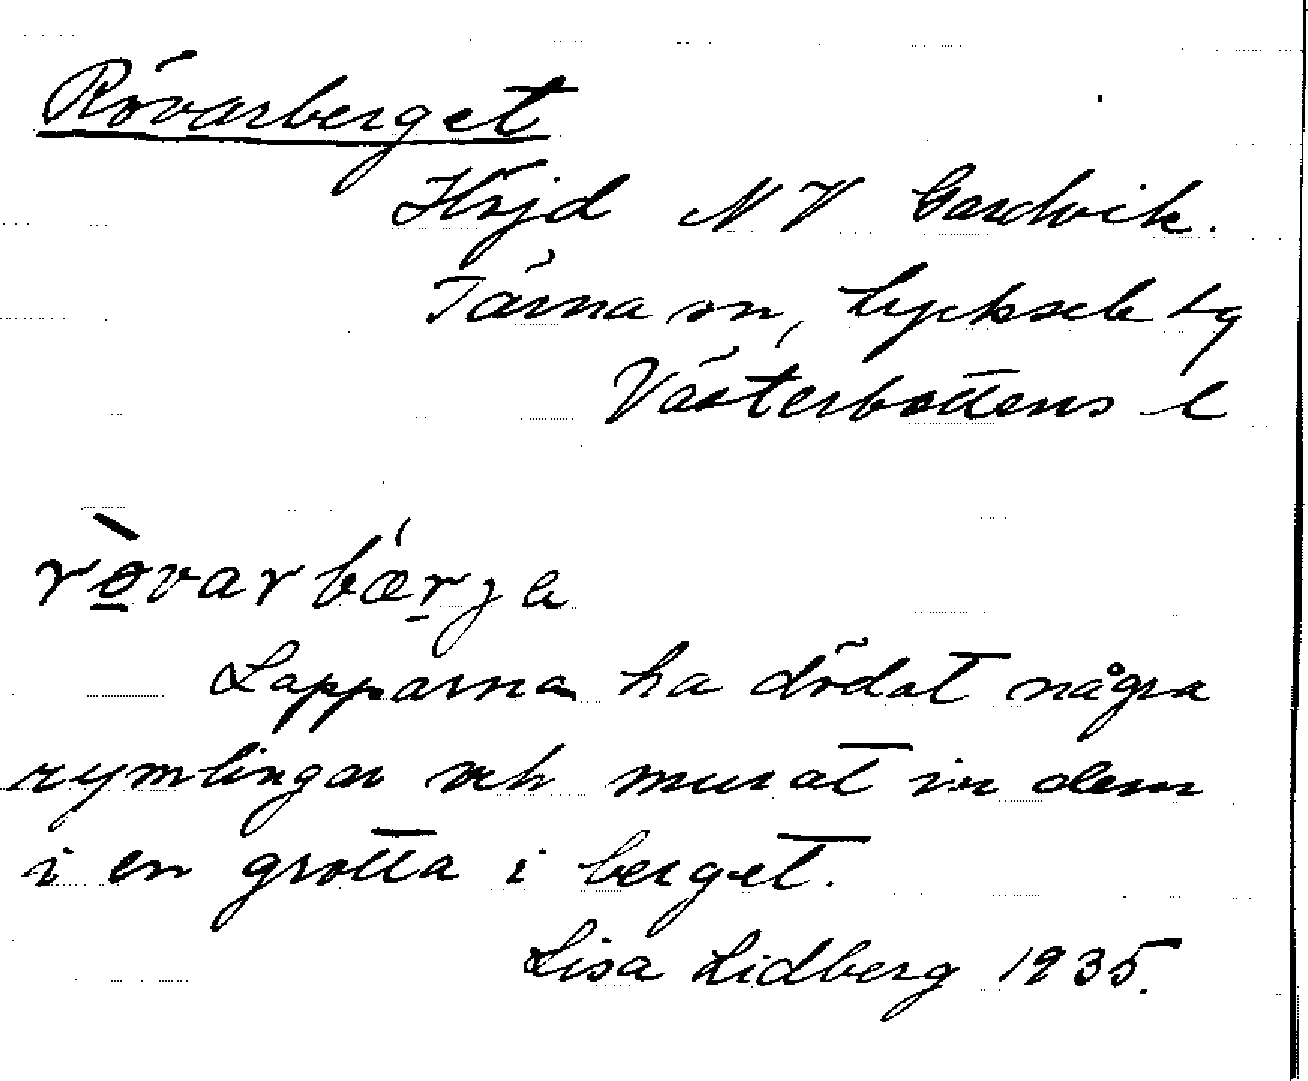 Rövarberget
Höjd NV Gardvik.
Tärna sn, Lycksele tg
Västerbottens l
rò̱varbæṟja
Lapparna ha dödat några
rymlingar och murat in dem
i en grotta i berget.
Lisa Lidberg 1935.